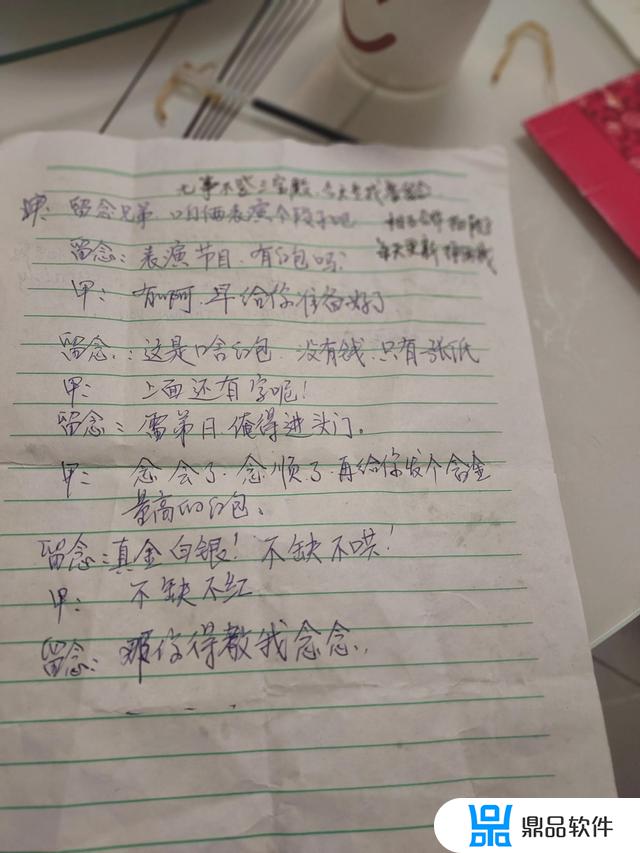 无事不登三宝殿
甲：留念兄弟，咱俩表演个段子吧
每天更新
留念：表演节目，有红包吗？
甲：有啊，早给你准备好了
留念：这是啥红包，没有钱，只有张纸
甲：上面还有字呢！
留念：弟曰俺得进头门。
甲：念会了，念顺了，再给你发个含金
量高的红包。
留念：真金白银！不缺不哄！
甲：不缺不红
留念：那你得教我念念.
鼎品软件